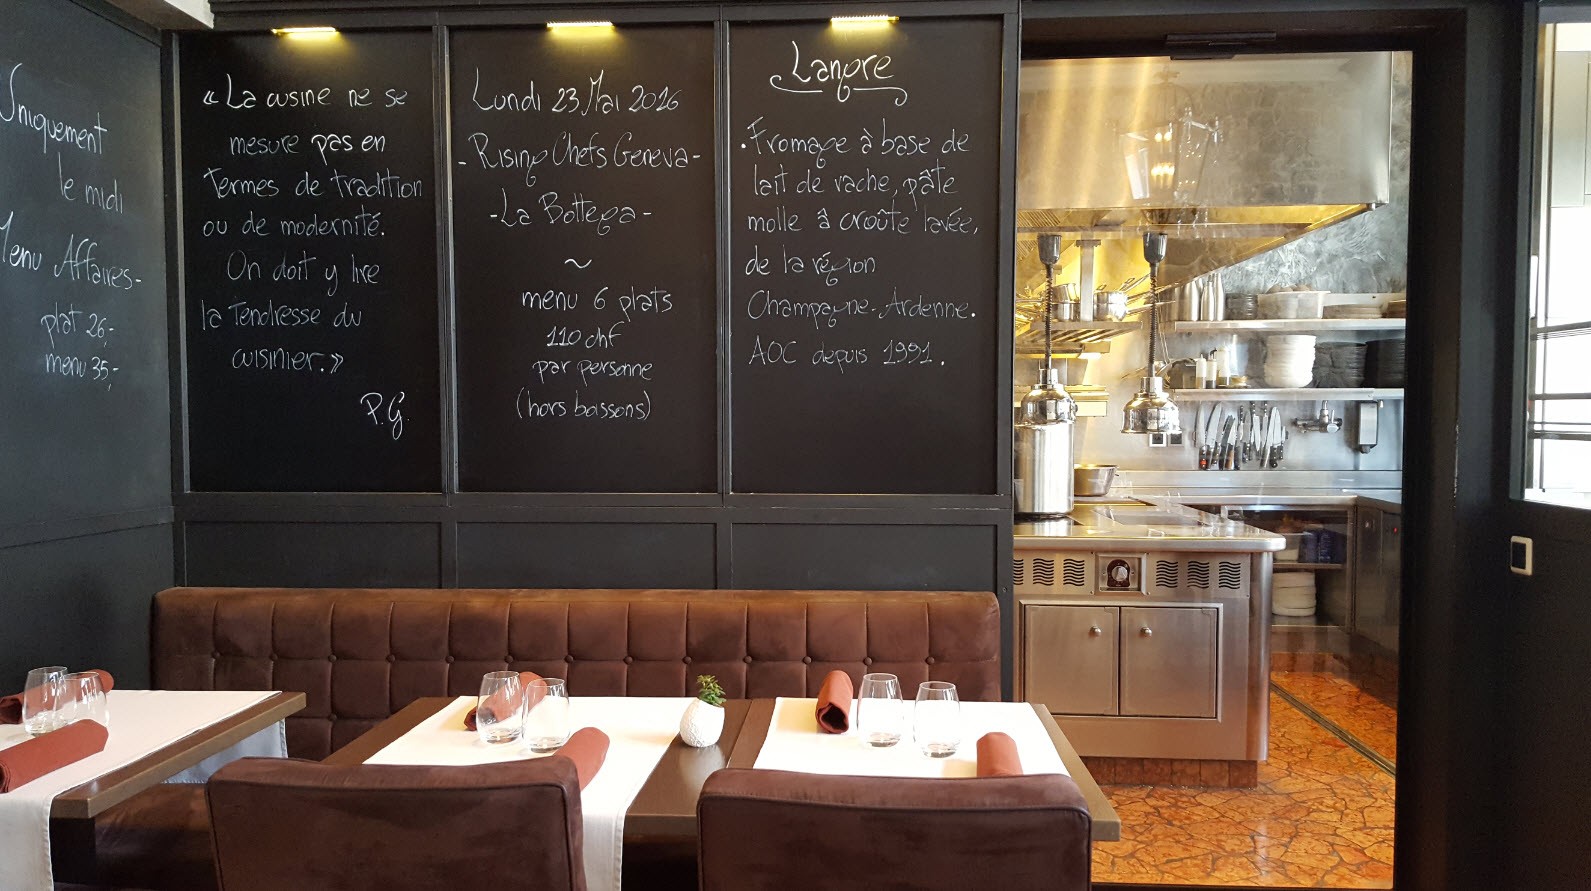 Uniquement
le midi
Menu Affaires-
plat 26,-
menu 35,-
« La cusine ne se
mesure pas en
termes de tradition
ou de modernité.
On doit y lire
la tendresse du
cuisinier.»
P.G.
Lundi 23 Mai 2016
- Rising Chefs Geneva -
- La Bottega -
~
menu 6 plats
110 chf
par personne
(hors boissons)
Langre
. Fromage à base de
lait de vache, pâte
molle â croûte lavée,
de la région
Champagne-Ardenne.
AOC depuis 1991.